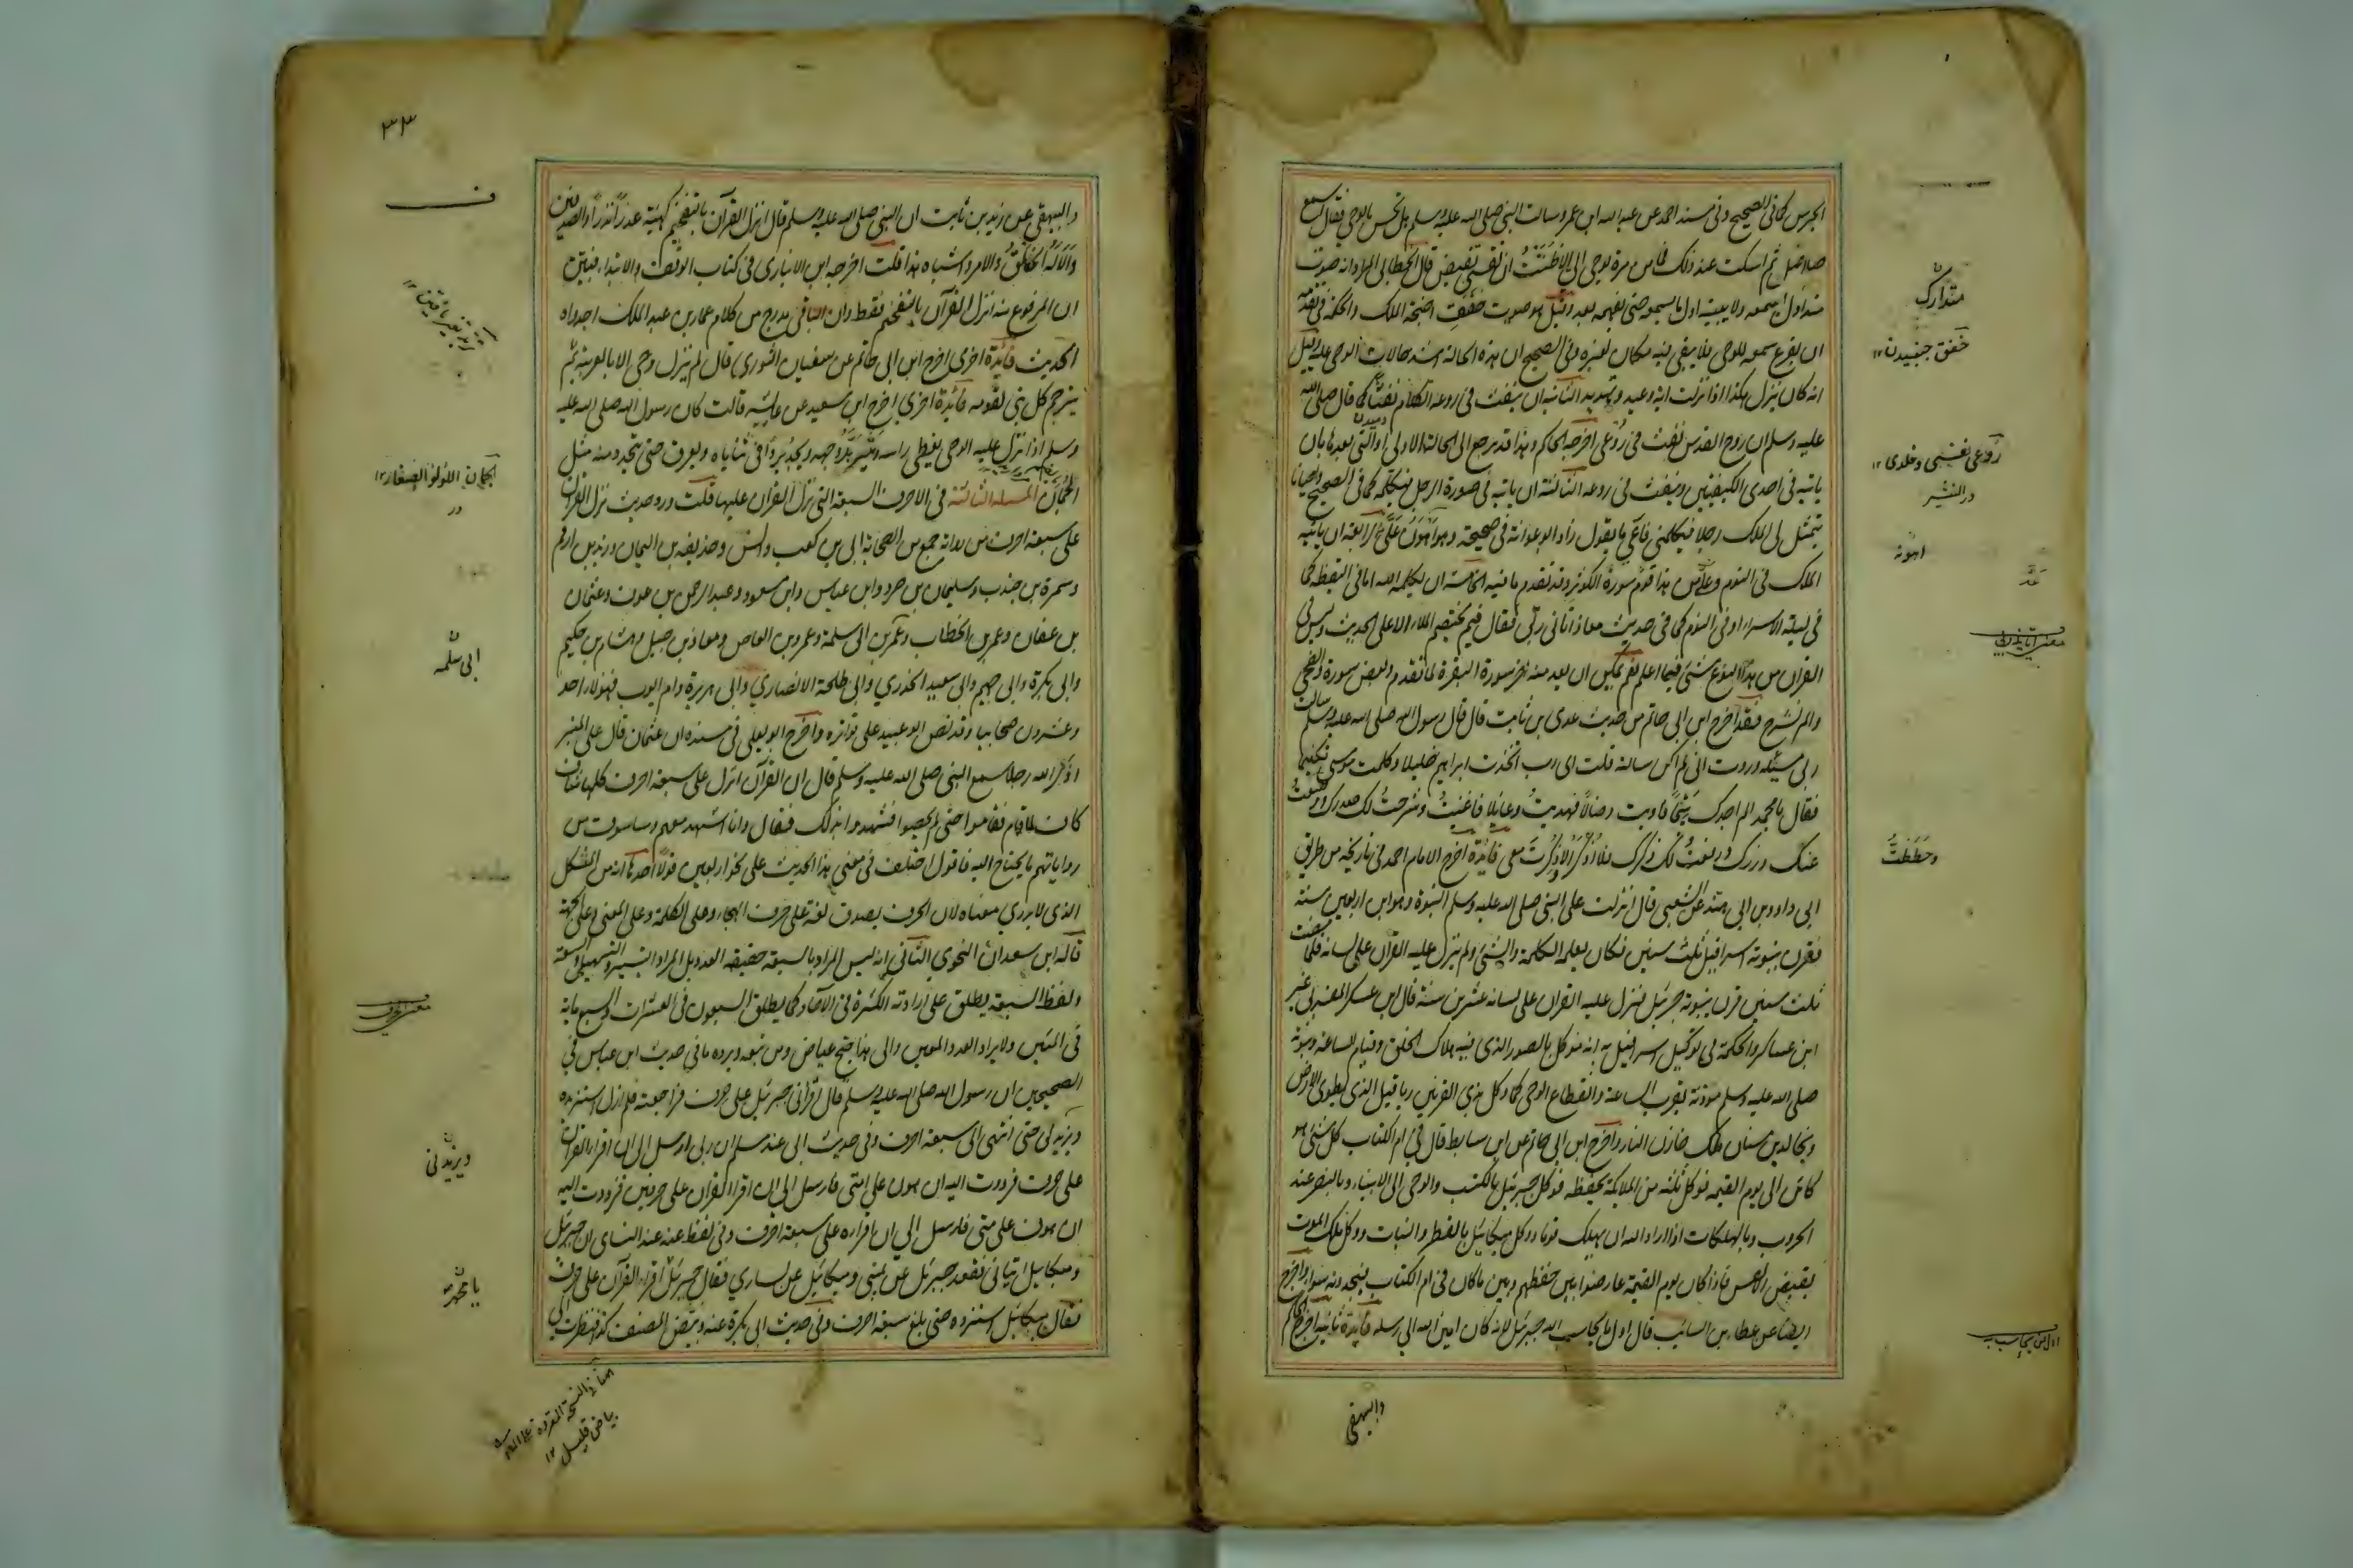 الجرس كما فى الصحيح وفى مسند احمد عن عبد الله ابن عمر و سالت النبى صلى الله عليه وسلم هل تحس بالوحي فقال اسمع
صلاصل ثم اسكت عند ذلك فما من مرة يوحى الى الا ظننت ان نفسى تقبض قال الخطابى المراد انه صوت
متداول يسمعه ولا يثبته اول ما يسمعه حتى يفهمه بعد وقيل هو صوت خفق اجنحة الملك والحكمة فى تقدمه
ان يفرغ سمعه للوحى فلا يبقى فيه مكان لغيره وفى الصحيح ان هذه الحالة اشد حالات الوحى عليه وقيل
انه كان ينزل هكذا اذا نزلت اية وعيد وتهديد الثانية ان ينفث فى روعه الكلام نفثا كما قال صلى الله
عليه وسلم ان روح القدس نفث فى روعى اخرجه الحاكم وهذا قد يرجع الى الحالة الاولى او التى بعدها بان
ياتيه فى احدى الكيفيتين وينفث فى روعه الثالثة ان ياتيه فى صورة الرجل فيكلمه كما فى الصحيح واحيانا
يتمثل لى الملك رجلا فيكلمنى فاعى ما يقول زاد ابو عوانة فى صحيحه وهو اهون على الرابعة ان ياتيه
الملك فى النوم وعد من هذا قوم سورة الكوثر وقد تقدم ما فيه الخامسة ان يكلمه الله اما فى اليقظة كما
فى ليلة الاسراء او فى النوم كما فى حديث معاذ اتانى ربى فقال فيم يختصم الملاء الاعلى الحديث وليس فى
القران من هذا النوع شئ فيما اعلم نعم يمكن ان يعد منه اخر سورة البقرة لما تقدم وبعض سورة الضحى
والم نشرح فقد اخرج ابن ابى حاتم من حديث عدى بن ثابت قال قال رسول الله صلى الله عليه وسلم سالت
ربى مسئلة وددت انى لم اكن سالته قلت اى رب اتخذت ابراهيم خليلا وكلمت موسى تكليما
فقال يا محمد الم اجدك يتيما فاويت وضالا فهديت وعائلا فاغنيت وشرحت لك صدرك ووضعت
عنك وزرك ورفعت لك ذكرك فلا اذكر الا ذكرت معى فائدة اخرج الامام احمد فى تاريخه من طريق
ابى داود بن ابى هند عن الشعبى قال انزلت على النبى صلى الله عليه وسلم النبوة وهو ابن اربعين سنة
فقرن بنبوته اسرافيل ثلث سنين فكان يعلمه الكلمة والشئ ولم ينزل عليه القرآن على لسانه فلما مضت
ثلث سنين قرن بنبوته جبرئيل فنزل عليه القران على لسانه عشرين سنة قال ابن عسكر
ابن عساكر والحكمة فى توكيل اسرافيل به انه موكل بالصور الذى فيه هلاك الخلق وقيام الساعة ونبوته
صلى الله عليه وسلم موذنة بقرب الساعة وانقطاع الوحى كما وكل بذى القرنين ريافيل الذى يطوى الارض
وبخالد بن سنان ملك خازن النار واخرج ابن ابى حاتم عن ابن سابط قال فى ام الكتاب كل شئ هو
كائن الى يوم القيمة فوكل ثلثة من الملائكة بحفظه فوكل جبرئيل بالكتب والوحى الى الانبياء وبالنصر عند
الحروب وبالهلكات اذا اراد الله ان يهلك قوما ووكل ميكائيل بالقطر والنبات ووكل ملك الموت
بقبض الانفس فاذا كان يوم القيمة عارضوا بين حفظهم وبين ما كان فى ام الكتاب فيجدونه سواء واخرج
ايضا عن عطاء بن السائب قال اول ما يحاسب الله جبرئيل لانه كان امين الله الى رسله فائدة ثانية اخرج الحاكم
والبيهقى
متدارك
خفق جنبيدن ١٢
روعى نفسى وخلدى ١٢
اهونه
وحططت
٣٣
والبيهقى عن زيد بن ثابت ان النبى صلى الله عليه وسلم قال انزل القرآن بالتفخيم كهيئة عذرا نذرا والصدفين
والا له الخلق والامر واشباه هذا قلت اخرجه ابن الانبارى فى كتاب الوقف والابتداء فبين
ان المرفوع منه انزل القرآن بالتفخيم فقط وان الباقى مدرج من كلام عمار بن عبد الملك احد رواة
الحديث فائدة اخرى اخرج ابن ابى حاتم عن سفيان الثورى قال لم ينزل وحى الا بالعربية ثم
يترجم كل نبى لقومه فائدة اخرى اخرج ابن سعيد عن عائشة قالت كان رسول الله صلى الله عليه
وسلم اذا نزل عليه الوحى يغطى راسه ويتربد وجهه ويجد بردا فى ثناياه ويعرق حتى يتحدر منه مثل
الجمان المسئلة الثالثة فى الاحرف السبعة التى نزل القران عليها قلت ورد حديث نزل القران
على سبعة احرف من رواية جمع من الصحابة ابى بن كعب وانس وحذيفة بن اليمان وزيد بن ارقم
وسمرة بن جندب وسليمان بن صرد وابن عباس وابن مسعود وعبد الرحمن بن عوف وعثمان
بن عفان وعمر بن الخطاب وعمر بن ابى سلمة وعمرو بن العاص ومعاذ بن جبل وهشام بن حكيم
وابى بكرة وابى جهيم وابى سعيد الخدري وابى طلحة الانصاري وابى هريرة وام ايوب فهؤلاء احد
وعشرون صحابيا وقد نص ابو عبيد على تواتره واخرج ابو يعلى فى مسنده ان عثمان قال على المنبر
اذكر الله رجلا سمع النبى صلى الله عليه وسلم قال ان القرآن انزل على سبعة احرف كلها شاف
كاف لما قام فقاموا حتى لم يحصوا فشهدوا بذلك فقال وانا اشهد معهم وساسوق من
رواياتهم ما يحتاج اليه فاقول اختلف فى معنى هذا الحديث على نحو اربعين قولا احدها انه من المشكل
الذى لا يدرى معناه لان الحرف يصدق لغة على حرف الهجاء وعلى الكلمة وعلى المعنى وعلى الجهة
قاله ابن سعدان النحوى الثانى انه ليس المراد بالسبعة حقيقة العدد بل المراد التيسير والتسهيل والسعة
ولفظ السبعة يطلق على ارادة الكثرة فى الآحاد كما يطلق السبعون فى العشرات والسبعماية
فى المئين ولا يراد العدد المعين والى هذا جنح عياض ومن تبعه ويرده ما فى حديث ابن عباس فى
الصحيحين ان رسول الله صلى الله عليه وسلم قال اقرانى جبرئيل على حرف فراجعته فلم ازل استزيده
ويزيدنى حتى انتهى الى سبعة احرف وفى حديث ابى عند مسلم ان ربى ارسل الى ان اقرا القرآن
على حرف فرددت اليه ان هون على امتى فارسل الى ان اقرا القرآن على حرفين فرددت اليه
ان هون على امتى فارسل الى ان اقراه على سبعة احرف وفى لفظ عنه عند النساى ان جبرئيل
وميكائيل اتيانى فقعد جبرئيل عن يمينى وميكائيل عن يسارى فقال جبرئيل اقراء القرآن على حرف
فقال ميكائيل استزده حتى بلغ سبعة احرف وفى حديث ابى بكرة عنه
الجمان اللؤلؤ الصغار ١٢
ابى سلمه
ويزيدنى
يا محمد